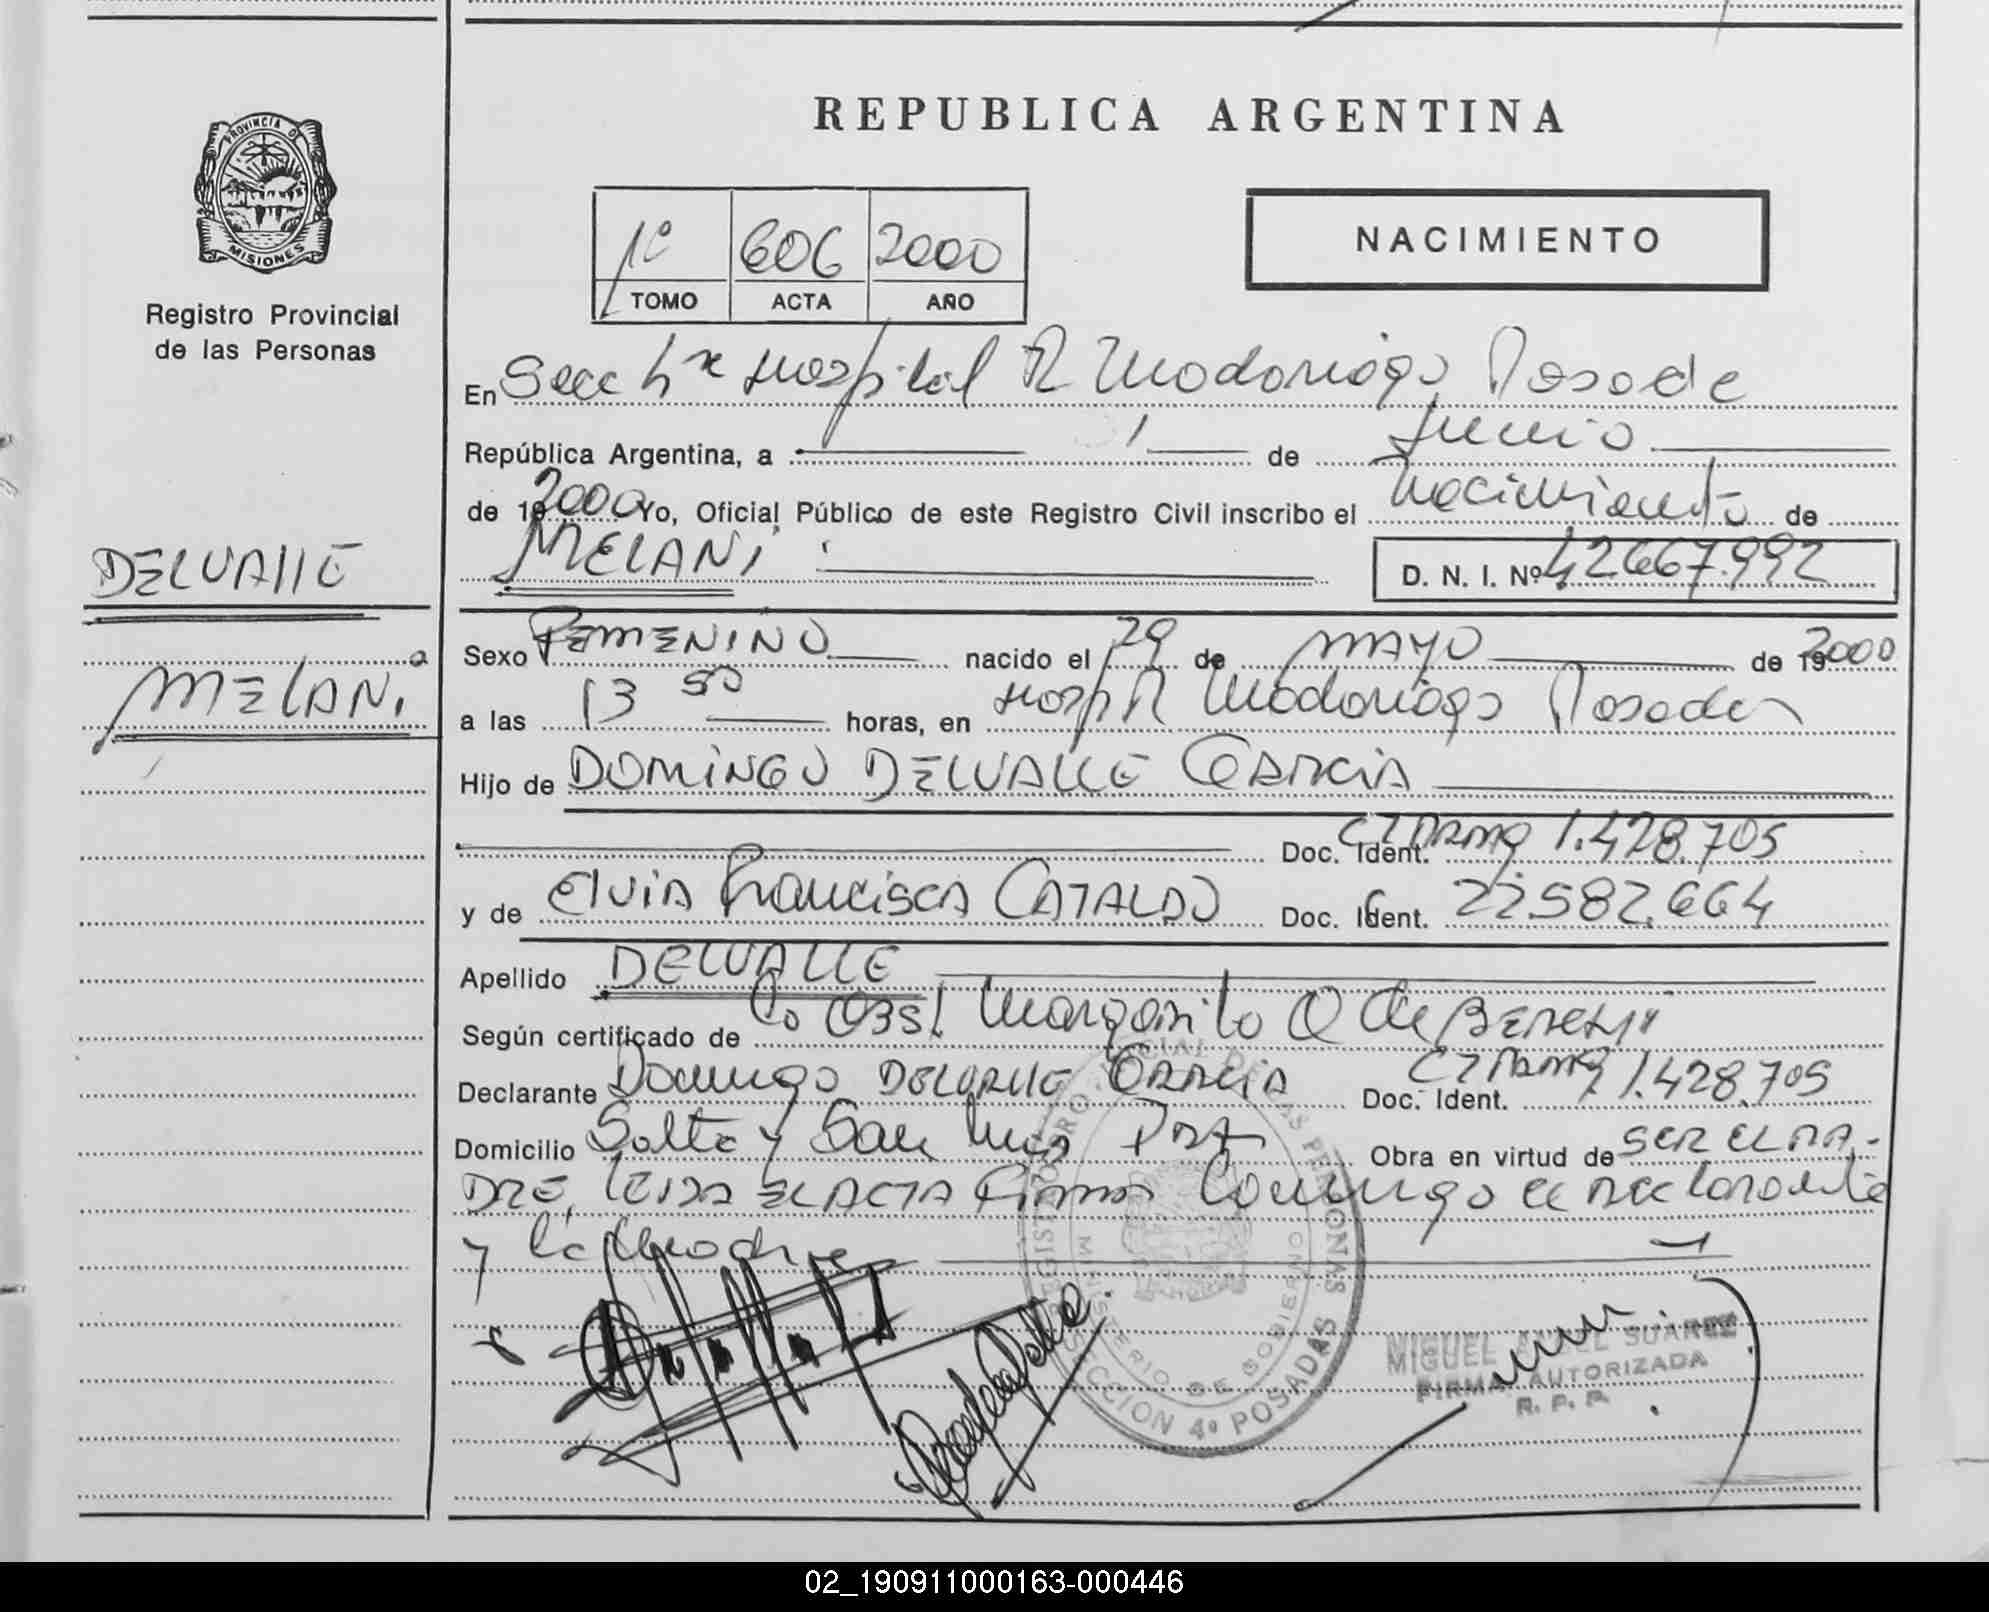 REPUBLICA ARGENTINA
PROVINCIA DE
MISIONES
Registro Provincial
de las Personas
1º 606 2000
TOMO ACTA AÑO
NACIMIENTO
En Secc 4ª Hospital R Madariaga Posadas
República Argentina, a 1 de Junio
de 192000 Yo, Oficial Público de este Registro Civil inscribo el Nacimiento de
MELANi D. N. I. Nº 42667.992
DELVALLE
MELANi
Sexo FEMENiNO nacido el 29 de MAYO de 192000
a las 13 50 horas, en Hosp R Madariaga Posadas
Hijo de DOMiNGO DELVALLE GARCiA
Doc. Ident. 1.428.705
y de ElViA Francisca CATALDO Doc. Ident. 22.582.664
Apellido DELVALLE
Según certificado de La Obst Margarita Q de
Declarante Domingo DELVALLE GARCiA Doc. Ident. 1.428.705
Domicilio Salta y San Luis Obra en virtud de SER EL PA-
DRE, LEiDA EL ACTA FiRMAN Conmigo el declarante
y la Madre
MINISTERIO DE GOBIERNO
SECCION 4º POSADAS
MIGUEL ANGEL SUAREZ
FIRMA AUTORIZADA
R. P. P.
02_190911000163-000446